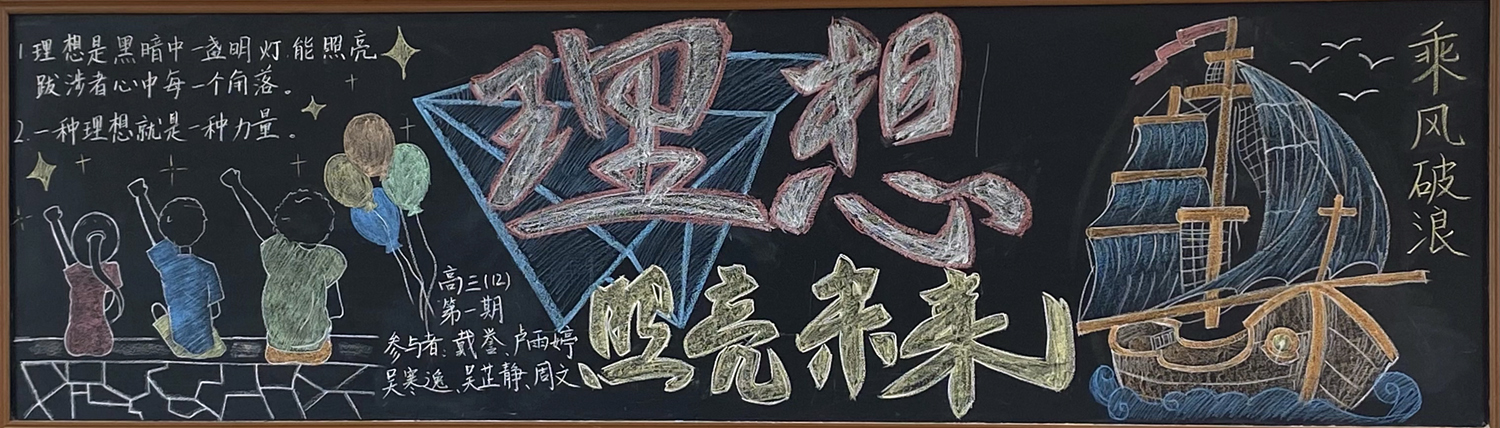 1.理想是黑暗中一盏明灯.能照亮
跋涉者心中每一个角落。
2.一种理想就是一种力量。
理想
照亮未来
高三(12)
第一期
参与者:戴誉、卢雨婷、
吴寒逸、吴芷静、周文
乘风破浪